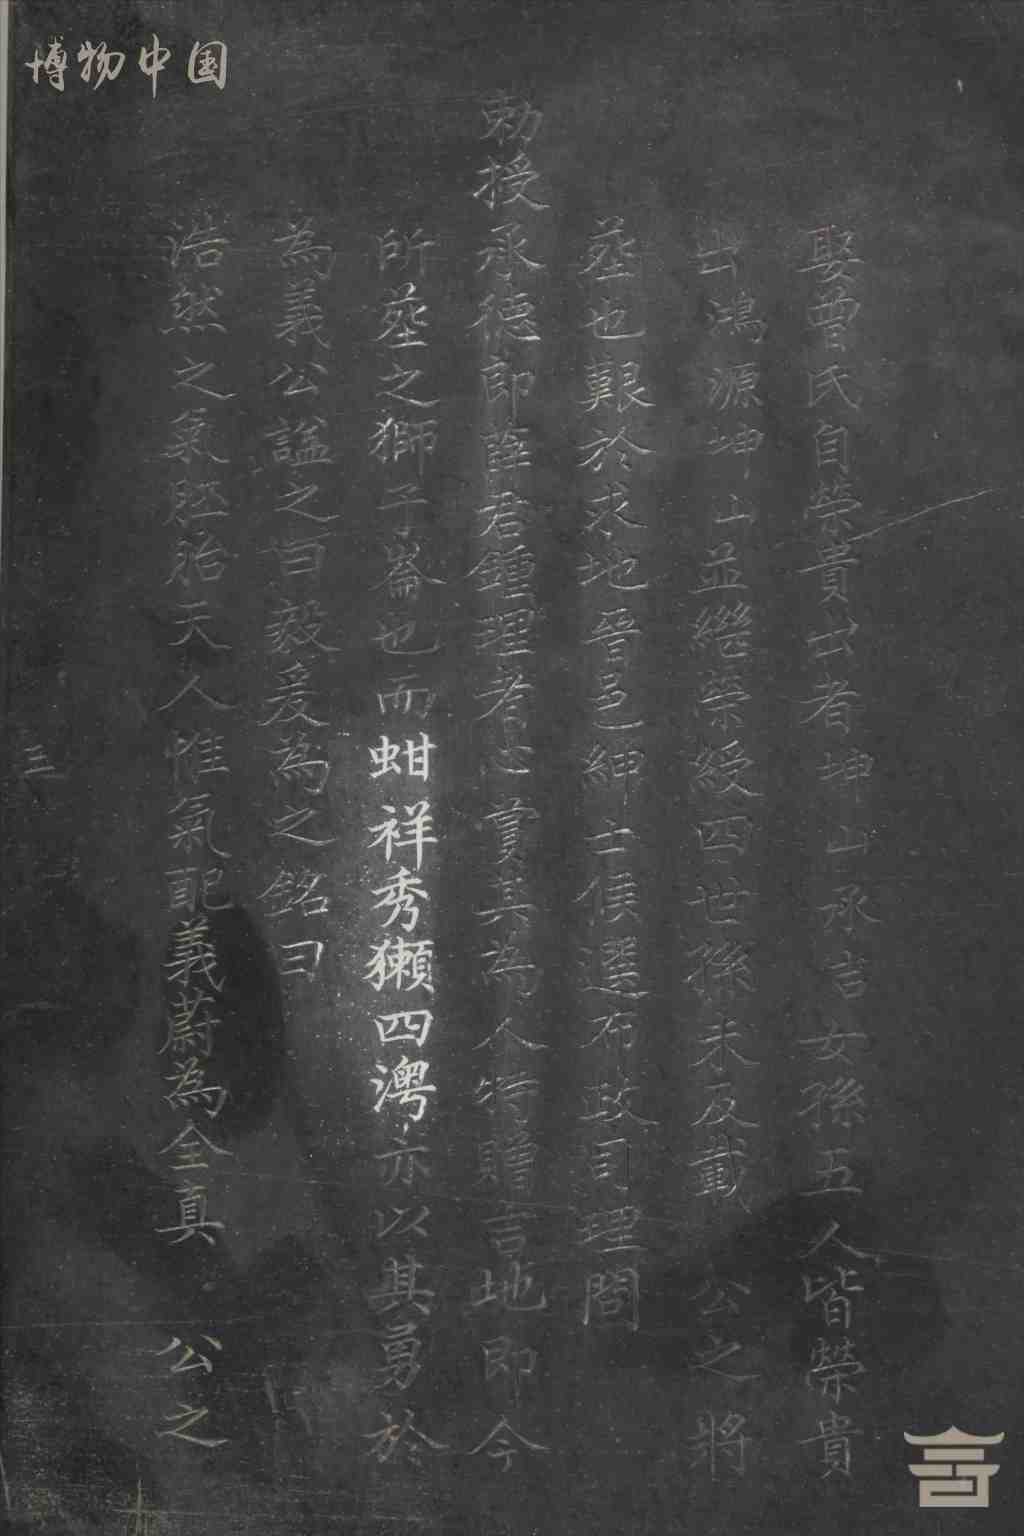 博物中国
娶曾氏自榮貴出者坤山承吉女孫五人皆榮貴
出鴻源坤山並繼榮綬四世孫未及載公之將
塟也艱於求地晉邑紳士候選布政司理問
勅授承德郎薛君鍾理者心賞其為人特贈吉地即今
所塟之獅子崙也而蚶祥秀獺四澚亦以其勇於
為義公謚之曰毅爰為之銘曰
浩然之氣胚胎天人惟氣配義蔚為全真公之
三